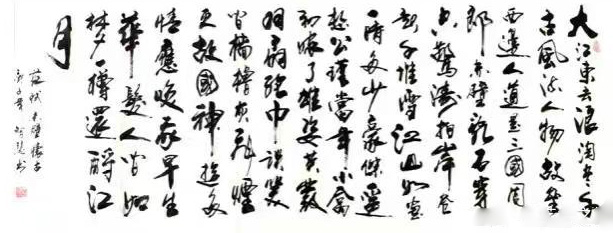 大江東去浪淘盡千
古風流人物故壘
西邊人道是三國周
郎赤壁亂石穿
空驚濤拍岸卷
起千堆雪江山如畫
一時多少豪傑遥
想公瑾當年小喬
初嫁了雄姿英發
羽扇綸巾談笑
間檣櫓灰飛煙
滅故國神遊多
情應笑我早生
華髮人間如
夢一樽還酹江
月
蘇軾赤壁懷古
庚子年 書